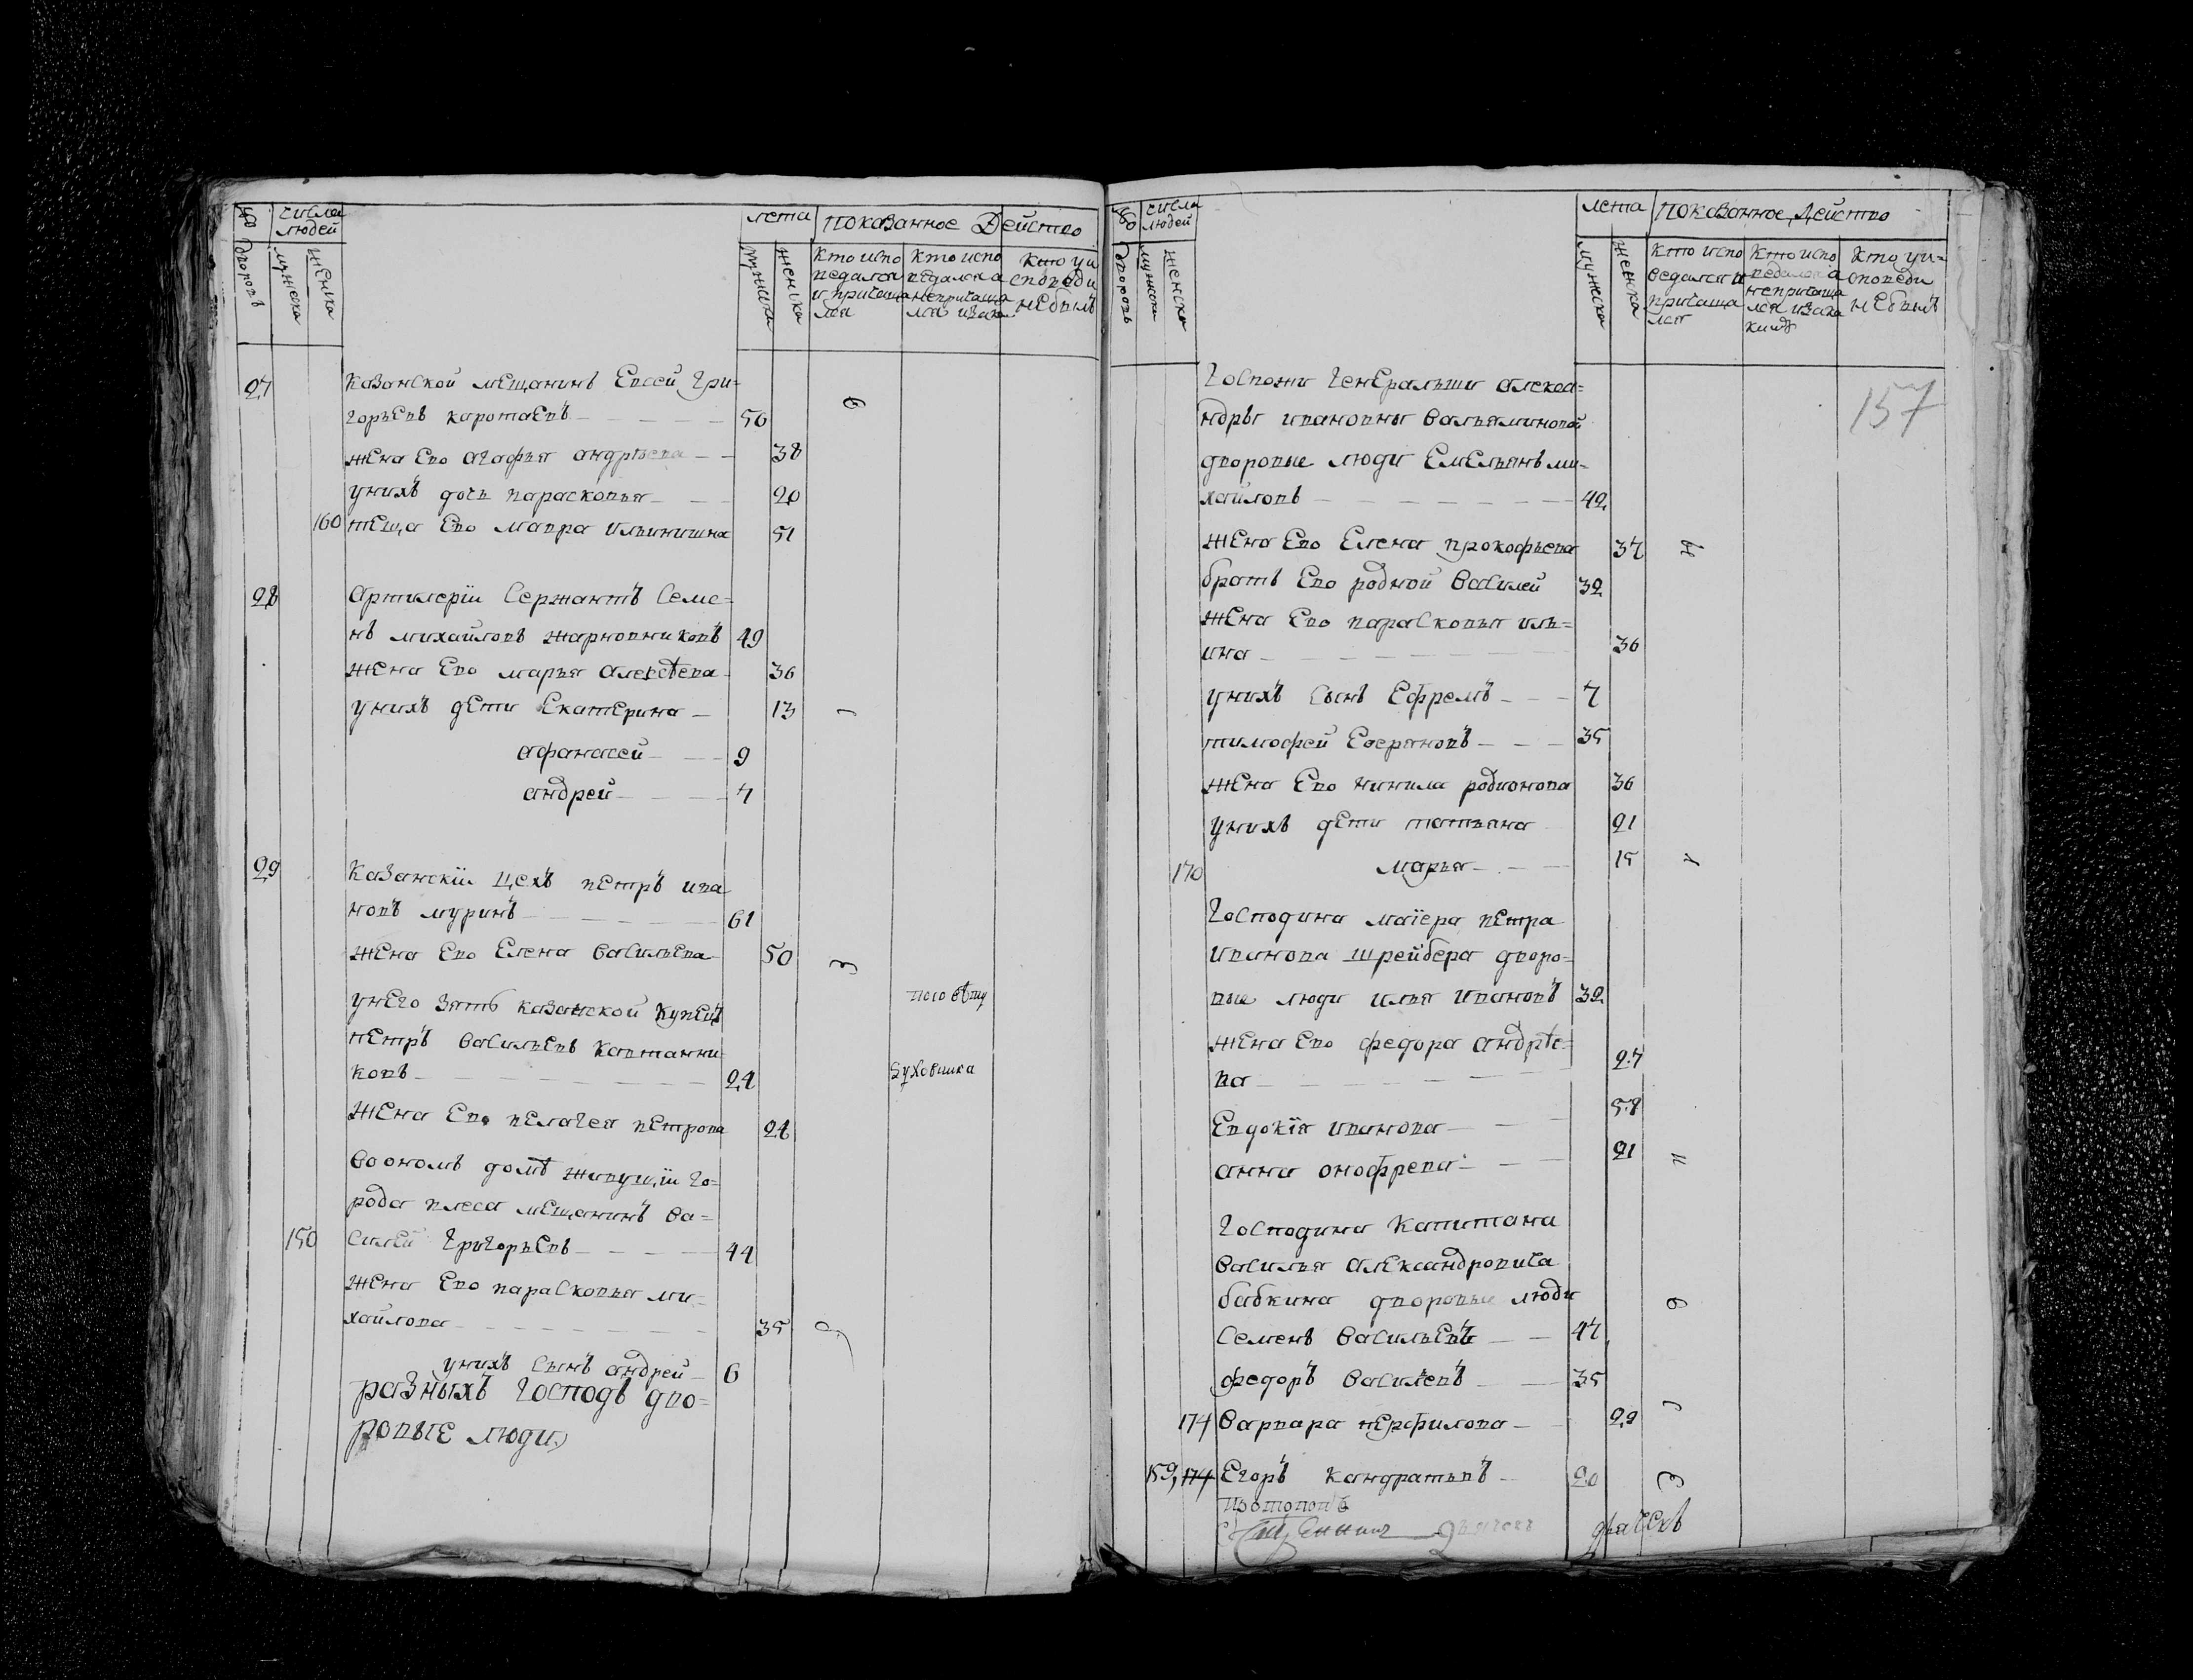 № дворовъ
числа людей
мужеска
женска
лета
мужеска
женска
показанное Действо
кто испо ведался и причаща лся
кто испо ведался а непричаща лся
кто уи споведи небылъ
27
Казанской мещанинъ Евсей Гри=
горьевъ каротаевъ 56
жена Ево агафья андрѣева 38
унихъ дочь парасковья 20
160 теща Ево мавра ильинишна 51
28
Артилеріи Сержантъ Семе=
нъ михайловъ жарновниковъ 49
жена Ево марья алексѣева 36
унихъ дети Екатерина 13
афанасей 9
андрей 4
29
Казанскіи цехъ петръ ива
новъ муринъ 61
жена Ево Елена васильева 50
унего зять казанской купецъ
петръ васильевъ кафтанни
ковъ 24
жена Ево пелагея петрова 24
во ономъ домѣ живущіи го=
рода плеса мещанинъ ва=
150 силей григорьевъ 44
жена Ево парасковья ми=
хайлова 35
унихъ сынъ андрей 6
по совѣту
духовника
разныхъ господъ дво=
ровые люди
№ дворовъ
числа людей
мужеска
женска
лета
мужеска
женска
показанное Действо
кто испо ведался и причаща лся
кто испо ведался а непричаща лся
кто уи= споведи небылъ
157
Госпожи генеральши алекса=
ндры ивановны вальяминовой
дворовые люди Емельянъ ми=
хайловъ 42
жена Ево Елена прокофьева 37
братъ Ево родной василей 32
жена Ево парасковья иль=
ина 36
унихъ сынъ Ефремъ 7
тимофей 35
жена Ево нинила родионова 36
унихъ дети татьяна 21
170 марья 15
Господина маіера петра
иванова шрейбера дворо=
вые люди илья ивановъ 32
жена Ево федора андрѣе=
ва 27
Евдокія иванова 58
анна онофрева 21
Господина капитана
василья александровича
бабкина дворовые люди
семенъ васильевъ 47
федоръ васильевъ 35
174 варвара перфилова 22
159, 174 Егоръ кандратьевъ 20
протопопъ
дьячекъ